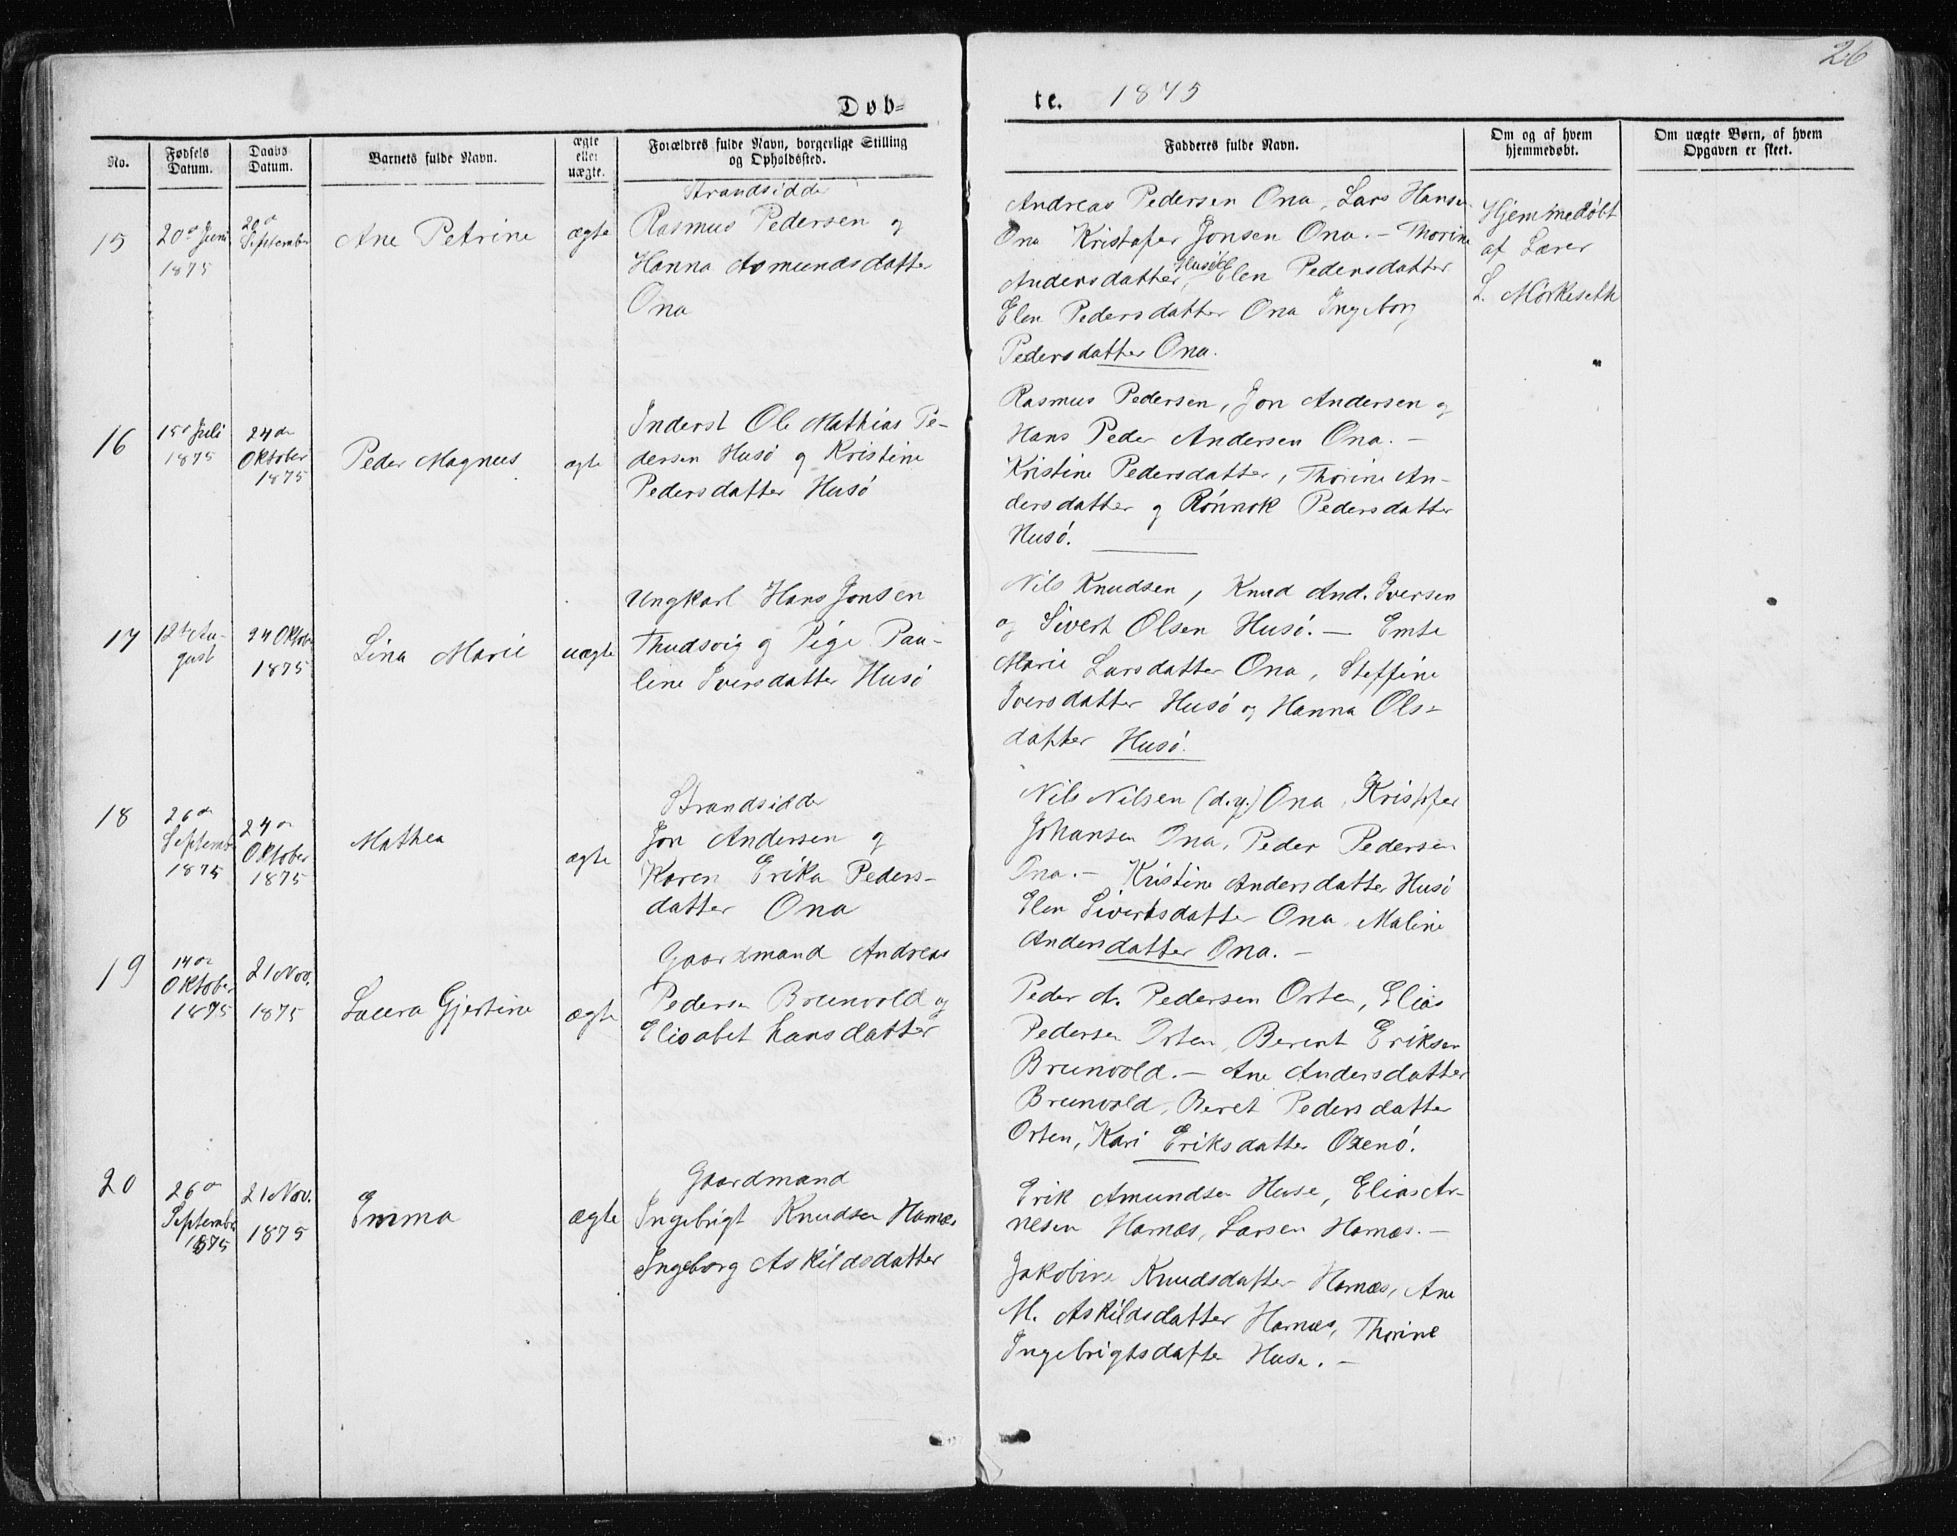 26
Døb=
te. 1875
No.
Fødsels Datum.
Daabs Datum.
Barnets fulde Navn.
ægte eller uægte.
Forældres fulde Navn, borgerlige Stilling og Opholdssted.
Fadderes fulde Navn.
Om og af hvem hjemmedøbt.
Om uægte Børn, af hvem Opgaven er skeet.
15
20de Juni
1875
20de
September
Ane Petrine
ægte
Strandsidder
Rasmus Pedersen og
Hanna Asmundsdatter
Ona
Andreas Pedersen Ona, Lars Hansen
Ona Kristofer Jonsen Ona. – Thorine
Andersdatter, Husø Elen Pedersdatter
Elen Pedersdatter Ona Ingeborg
Pedersdatter Ona.
Hjemmedøbt
af Lærer
L. Mørkeseth
16
15de Juli
1875
24de
Oktober
1875
Peder Magnus
ægte
Inderst Ole Mathias Pe-
dersen Husø og Kristine
Pedersdatter Husø
Rasmus Pedersen, Jon Andersen og
Hans Peder Andersen Ona. –
Kristine Pedersdatter, Thorine An-
dersdatter og Rønnok Pedersdatter
Husø.
17
12te Au-
gust
24 Oktober
1875
Lina Marie
uægte
Ungkarl Hans Jonsen
Thudsvig og Pige Pau-
line Iversdatter Husø
Nils Knudsen, Knud And. Iversen
og Sivert Olsen Husø. – Emte
Marie Larsdatter Ona, Steffine
Iversdatter Husø og Hanna Ols-
datter Husø.
18
26de
September
1875
24de
Oktober
1875
Mathea
ægte
Strandsidder
Jon Andersen og
Karen Erika Peders-
datter Ona
Nils Nilsen (d.y.) Ona, Kristofer
Johansen Ona, Peder Pedersen
Ona. – Kristine Andersdatter Husø
Elen Sivertsdatter Ona, Maline
Andersdatter Ona. –
19
14de
Oktober
1875
21 Nov.
1875
Laura Gjertine
ægte
Gaardmand Andreas
Pedersen Brunvold og
Elisabet Hansdatter
Peder A. Pedersen Orten, Elias
Pedersen Orten, Berent Eriksen
Brunvold. – Ane Andersdatter
Brunvold, Beret Pedersdatter
Orten, Kari Eriksdatter Oxenø.
20
26de
September
1875
21 Nov.
1875
Emma
ægte
Gaardmand
Ingebrigt Knudsen Harnæs
Ingeborg Askildsdatter
Erik Amundsen Huse, Elias Ar-
nesen Harnæs, Larsen Harnæs. –
Jakobine Knudsdatter Harnæs, Ane
M. Askildsdatter Harnæs, Thorine
Ingebrigtsdatter Huse. –